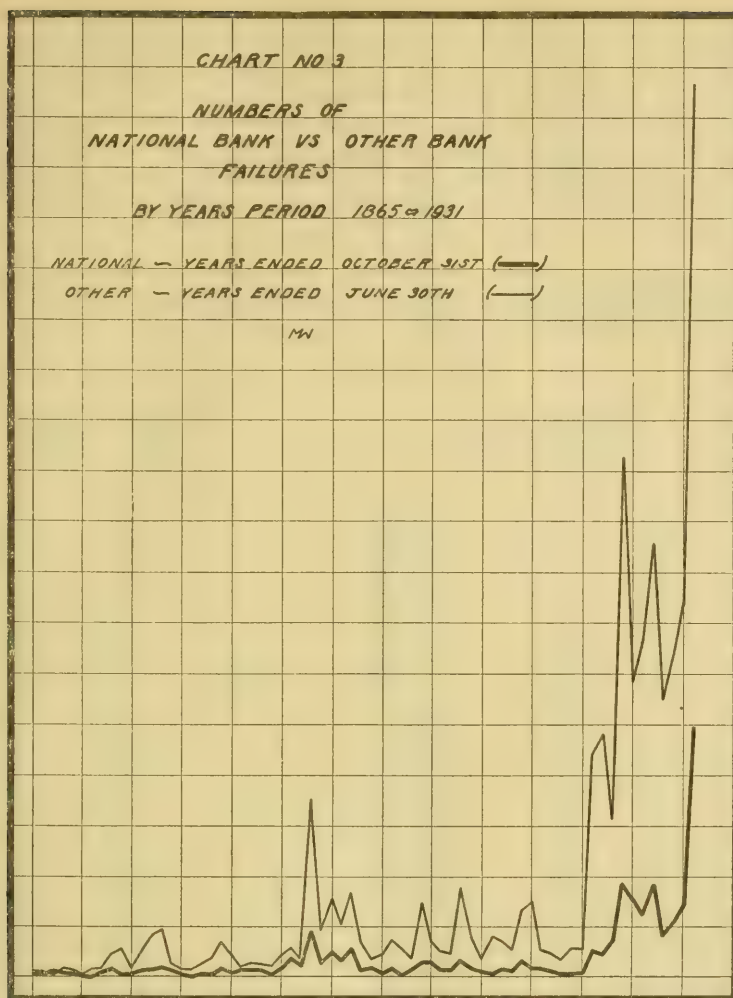 CHART NO 3
NUMBERS OF
NATIONAL BANK VS OTHER BANK
FAILURES
BY YEARS PERIOD 1865 ⇔ 1931
NATIONAL — YEARS ENDED OCTOBER 31ST (—)
OTHER — YEARS ENDED JUNE 30TH (—)
MW